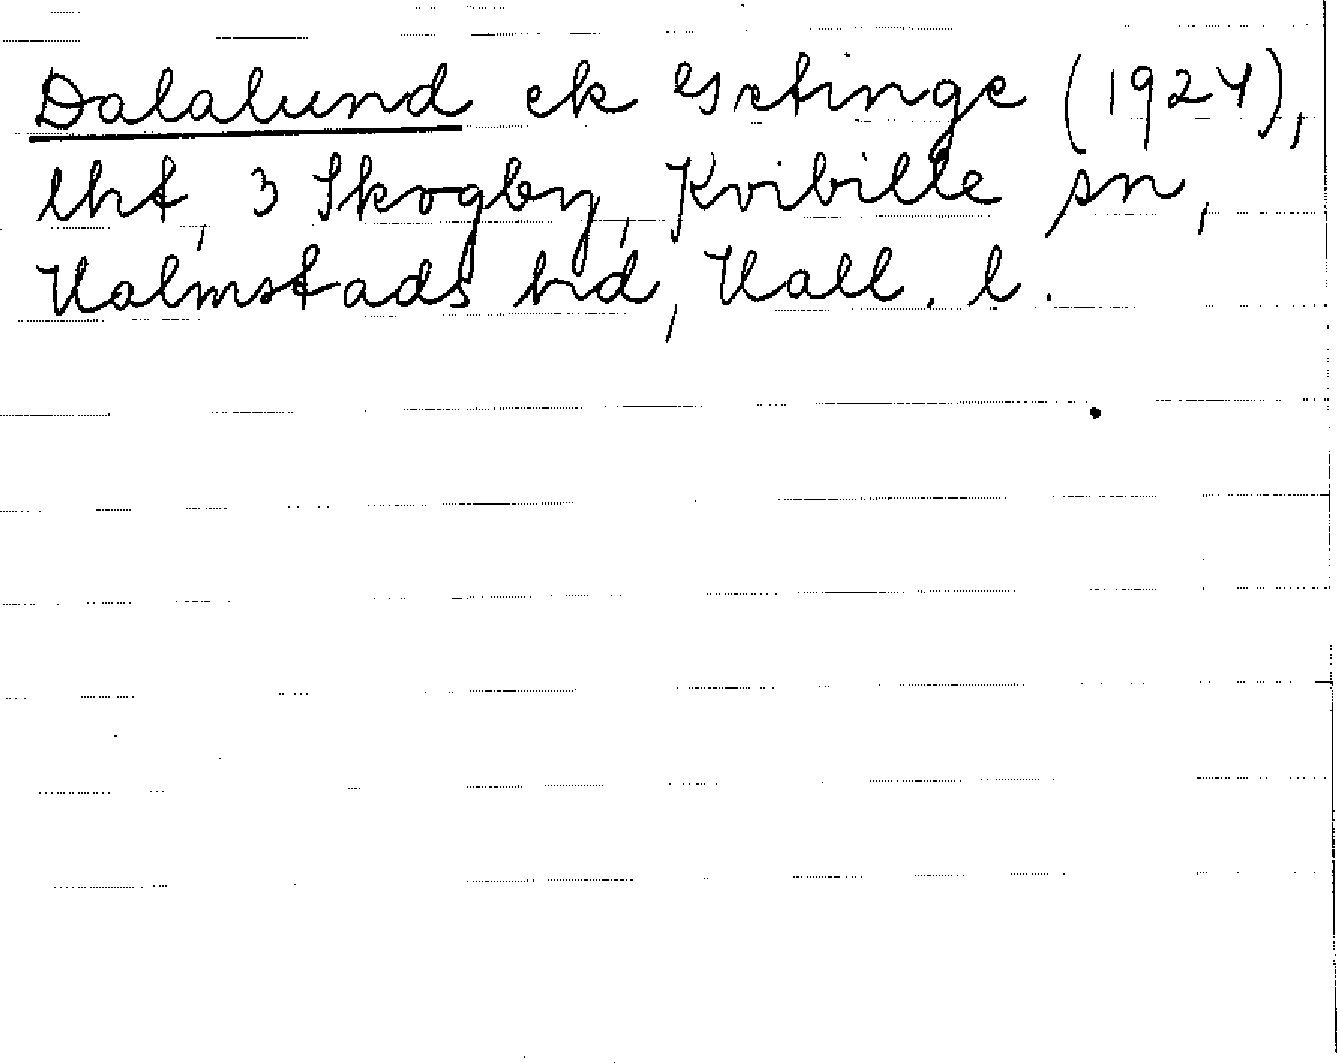 Dalalund ek Getinge (1924),
lht, 3 Skogby, Kvibille sn,
Halmstads hd, Hall. l.